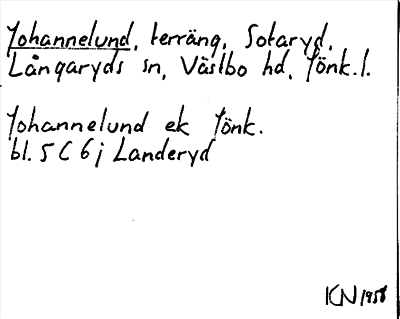 Johannelund, terräng, Sotaryd,
Långaryds sn, Västbo hd, Jönk.l.
Johannelund ek Jönk.
bl. 5 C 6 j Landeryd
KN 1958